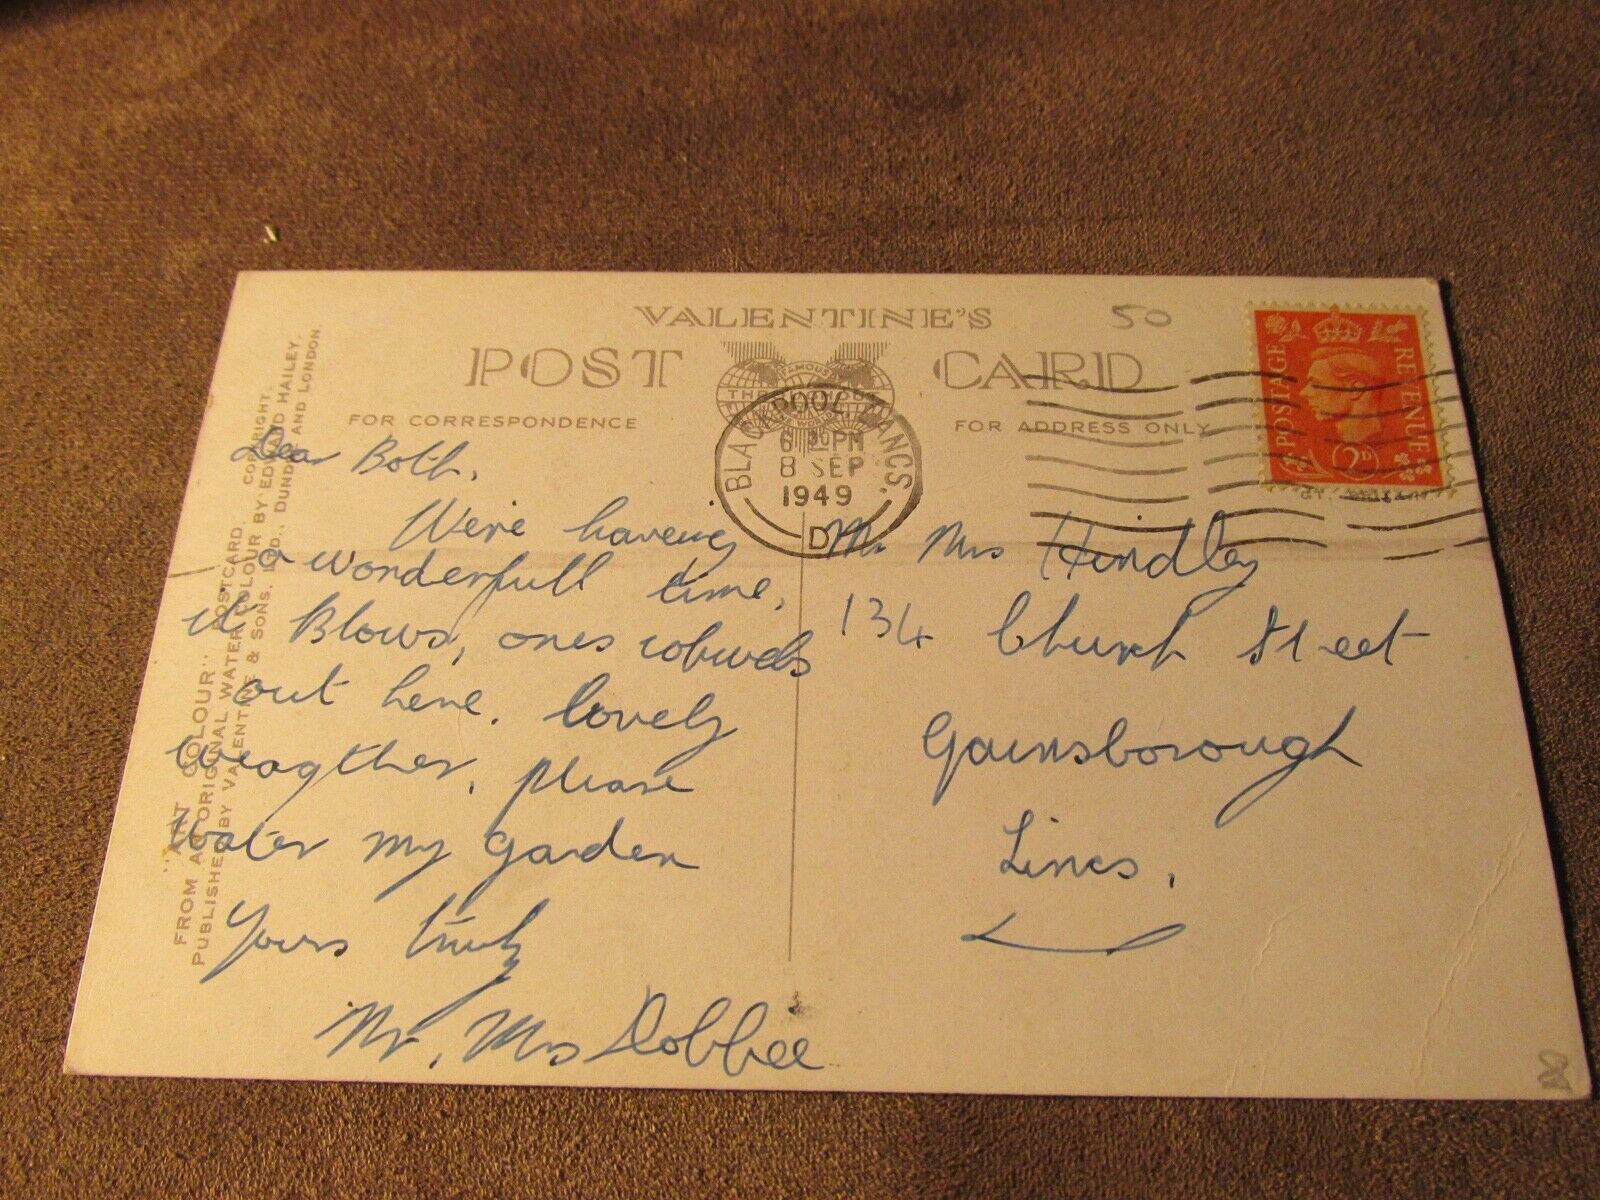 VALENTINE'S
50
POST CARD
FAMOUS
FOR CORRESPONDENCE
FOR ADDRESS ONLY
BLACKPOOL LANCS.
PM
8 SEP
1949
D
POSTAGE REVENUE
2D
Dear Both,
We're having
a wonderfull time,
it Blows, ones cobwebs
out here. lovely
Weagther, please
Water my garden
Yours truly
Mr, Mrs Dobbee
Mr Mrs Hindley
134 Church Street
Gainsborough
Lincs,
"ART COLOUR"
FROM AN ORIGINAL WATER COLOUR BY EDWARD HAILEY.
POSTCARD.
COPYRIGHT.
PUBLISHED BY VALENTINE & SONS, LTD., DUNDEE AND LONDON